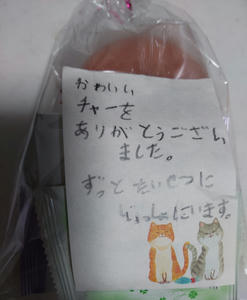 かわいい
チャーを
ありがとうござい
ました。
ずっと たいせつに
します。